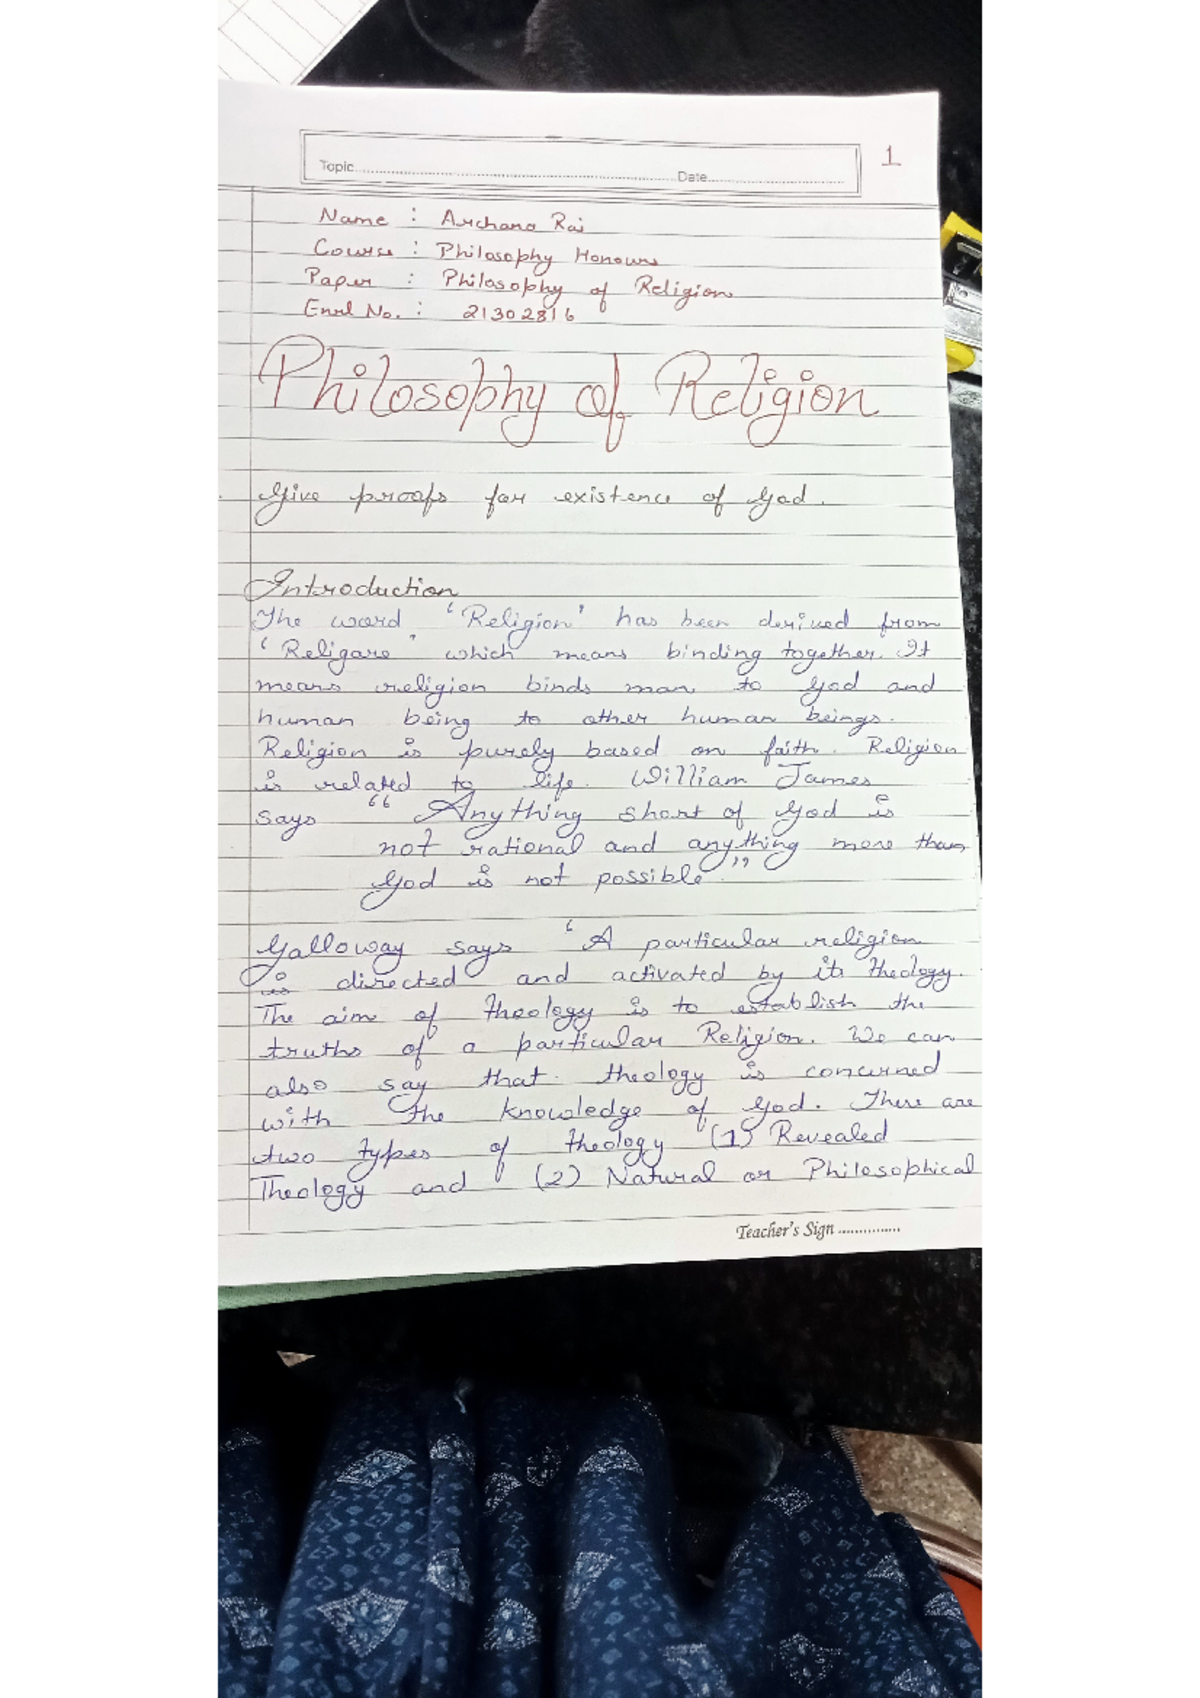 1
Topic Date
Name : Archana Rai
Course : Philosophy Honours
Paper : Philosophy of Religion
Enrl No. : 21302816
Philosophy of Religion
Give proofs for existence of God.
Introduction
The word 'Religion' has been derived from
'Religare' which means binding together. It
means religion binds man to God and
human being to other human beings.
Religion is purely based on faith. Religion
is related to life. William James
says "Anything short of God is
not rational and anything more than
God is not possible."
Galloway says 'A particular religion
is directed and activated by its theology.
The aim of theology is to establish the
truths of a particular Religion. We can
also say that theology is concerned
with the knowledge of God. There are
two types of theology (1) Revealed
Theology and (2) Natural or Philosophical
Teacher's Sign